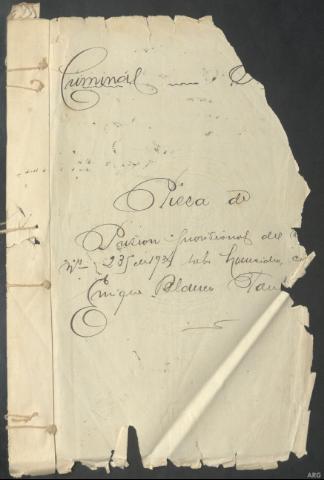 Criminal
Pieza de
Prision provisional del
Nº 235 de 193 sobre homicidio, c
Enrique Blanco
ARG